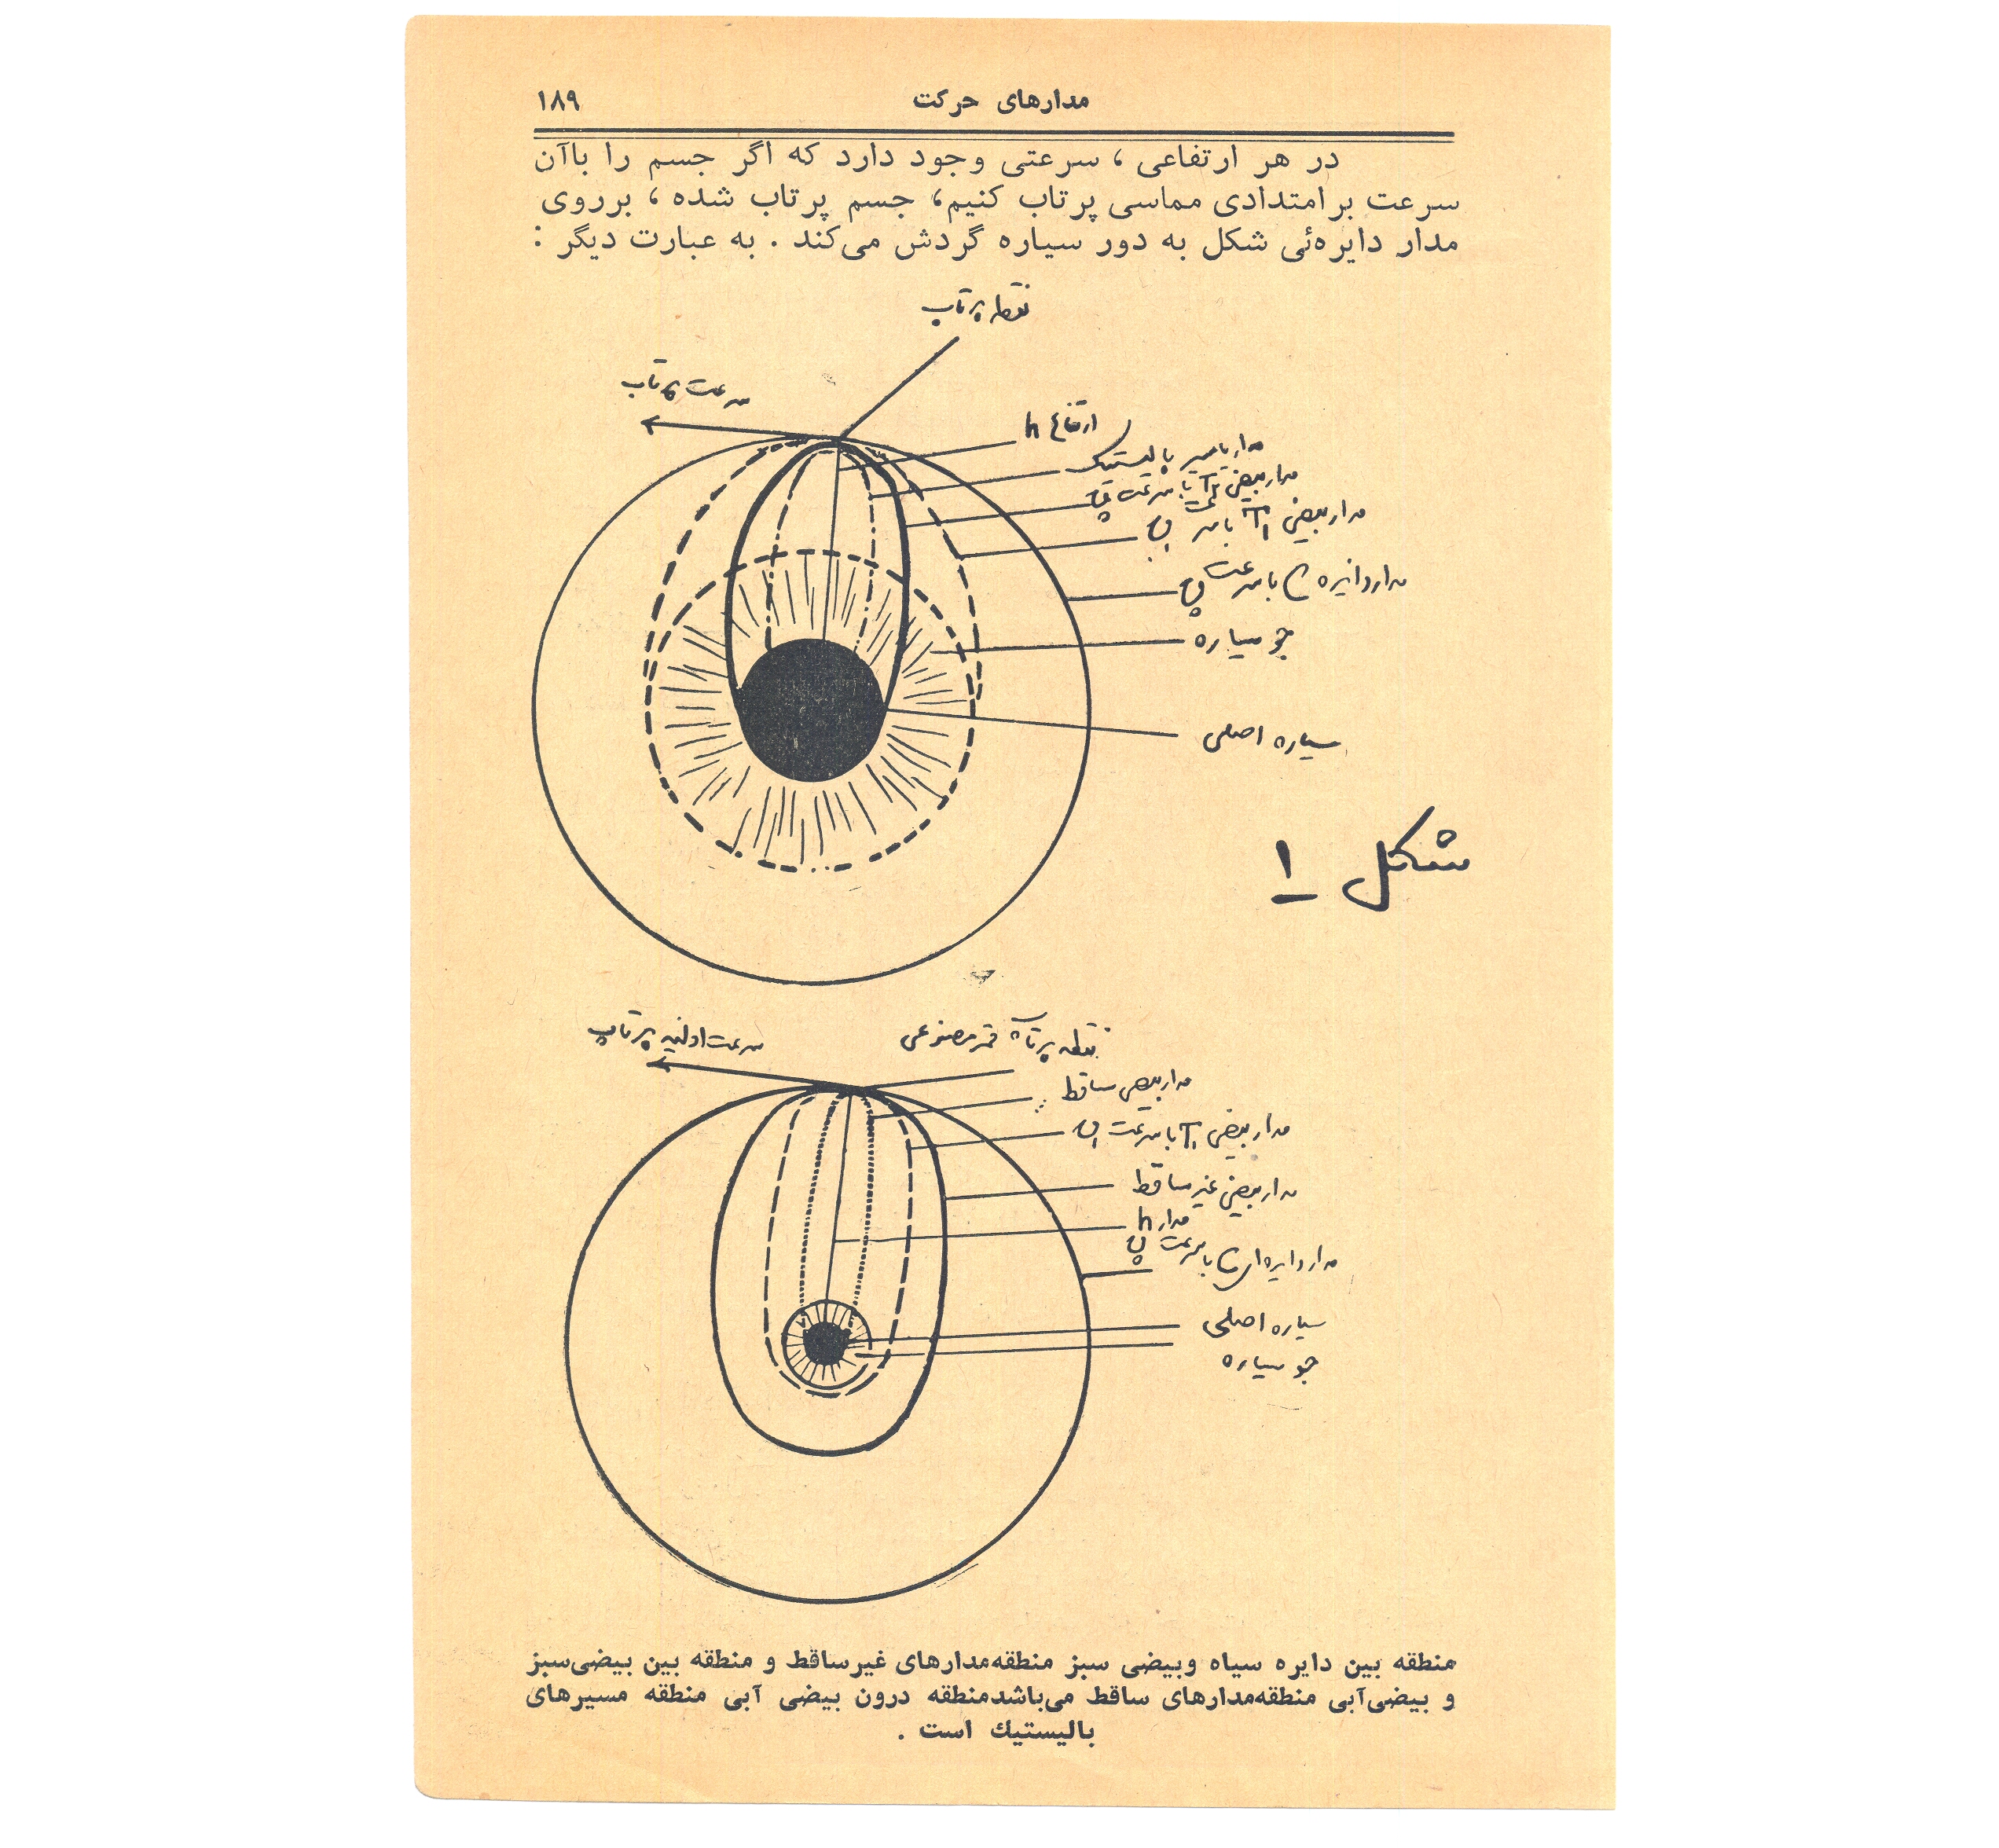 مدارهای حرکت
۱۸۹
در هر ارتفاعی ، سرعتی وجود دارد که اگر جسم را باآن
سرعت برامتدادی مماسی پرتاب کنیم، جسم پرتاب شده ، برروی
مدار دایره‌ئی شکل به دور سیاره گردش می‌کند . به عبارت دیگر :
نقطه پرتاب
سرعت پرتاب
ارتفاع h
مدار یا مسیر بالیستیک
مدار بیضی T₂ با سرعت
مدار بیضی T₁ با
مدار دایره C با سرعت
جو سیاره
سیاره اصلی
شکل ۱
سرعت اولیه پرتاب
نقطه پرتاب قمر مصنوعی
مدار بیضی ساقط
مدار بیضی T₁ با سرعت
مدار بیضی غیر ساقط
مدار h
مدار دایره‌ای C با سرعت
سیاره اصلی
جو سیاره
منطقه بین دایره سیاه وبیضی سبز منطقه‌مدارهای غیرساقط و منطقه بین بیضی‌سبز
و بیضی‌آبی منطقه‌مدارهای ساقط می‌باشدمنطقه درون بیضی آبی منطقه مسیرهای
بالیستیك است .